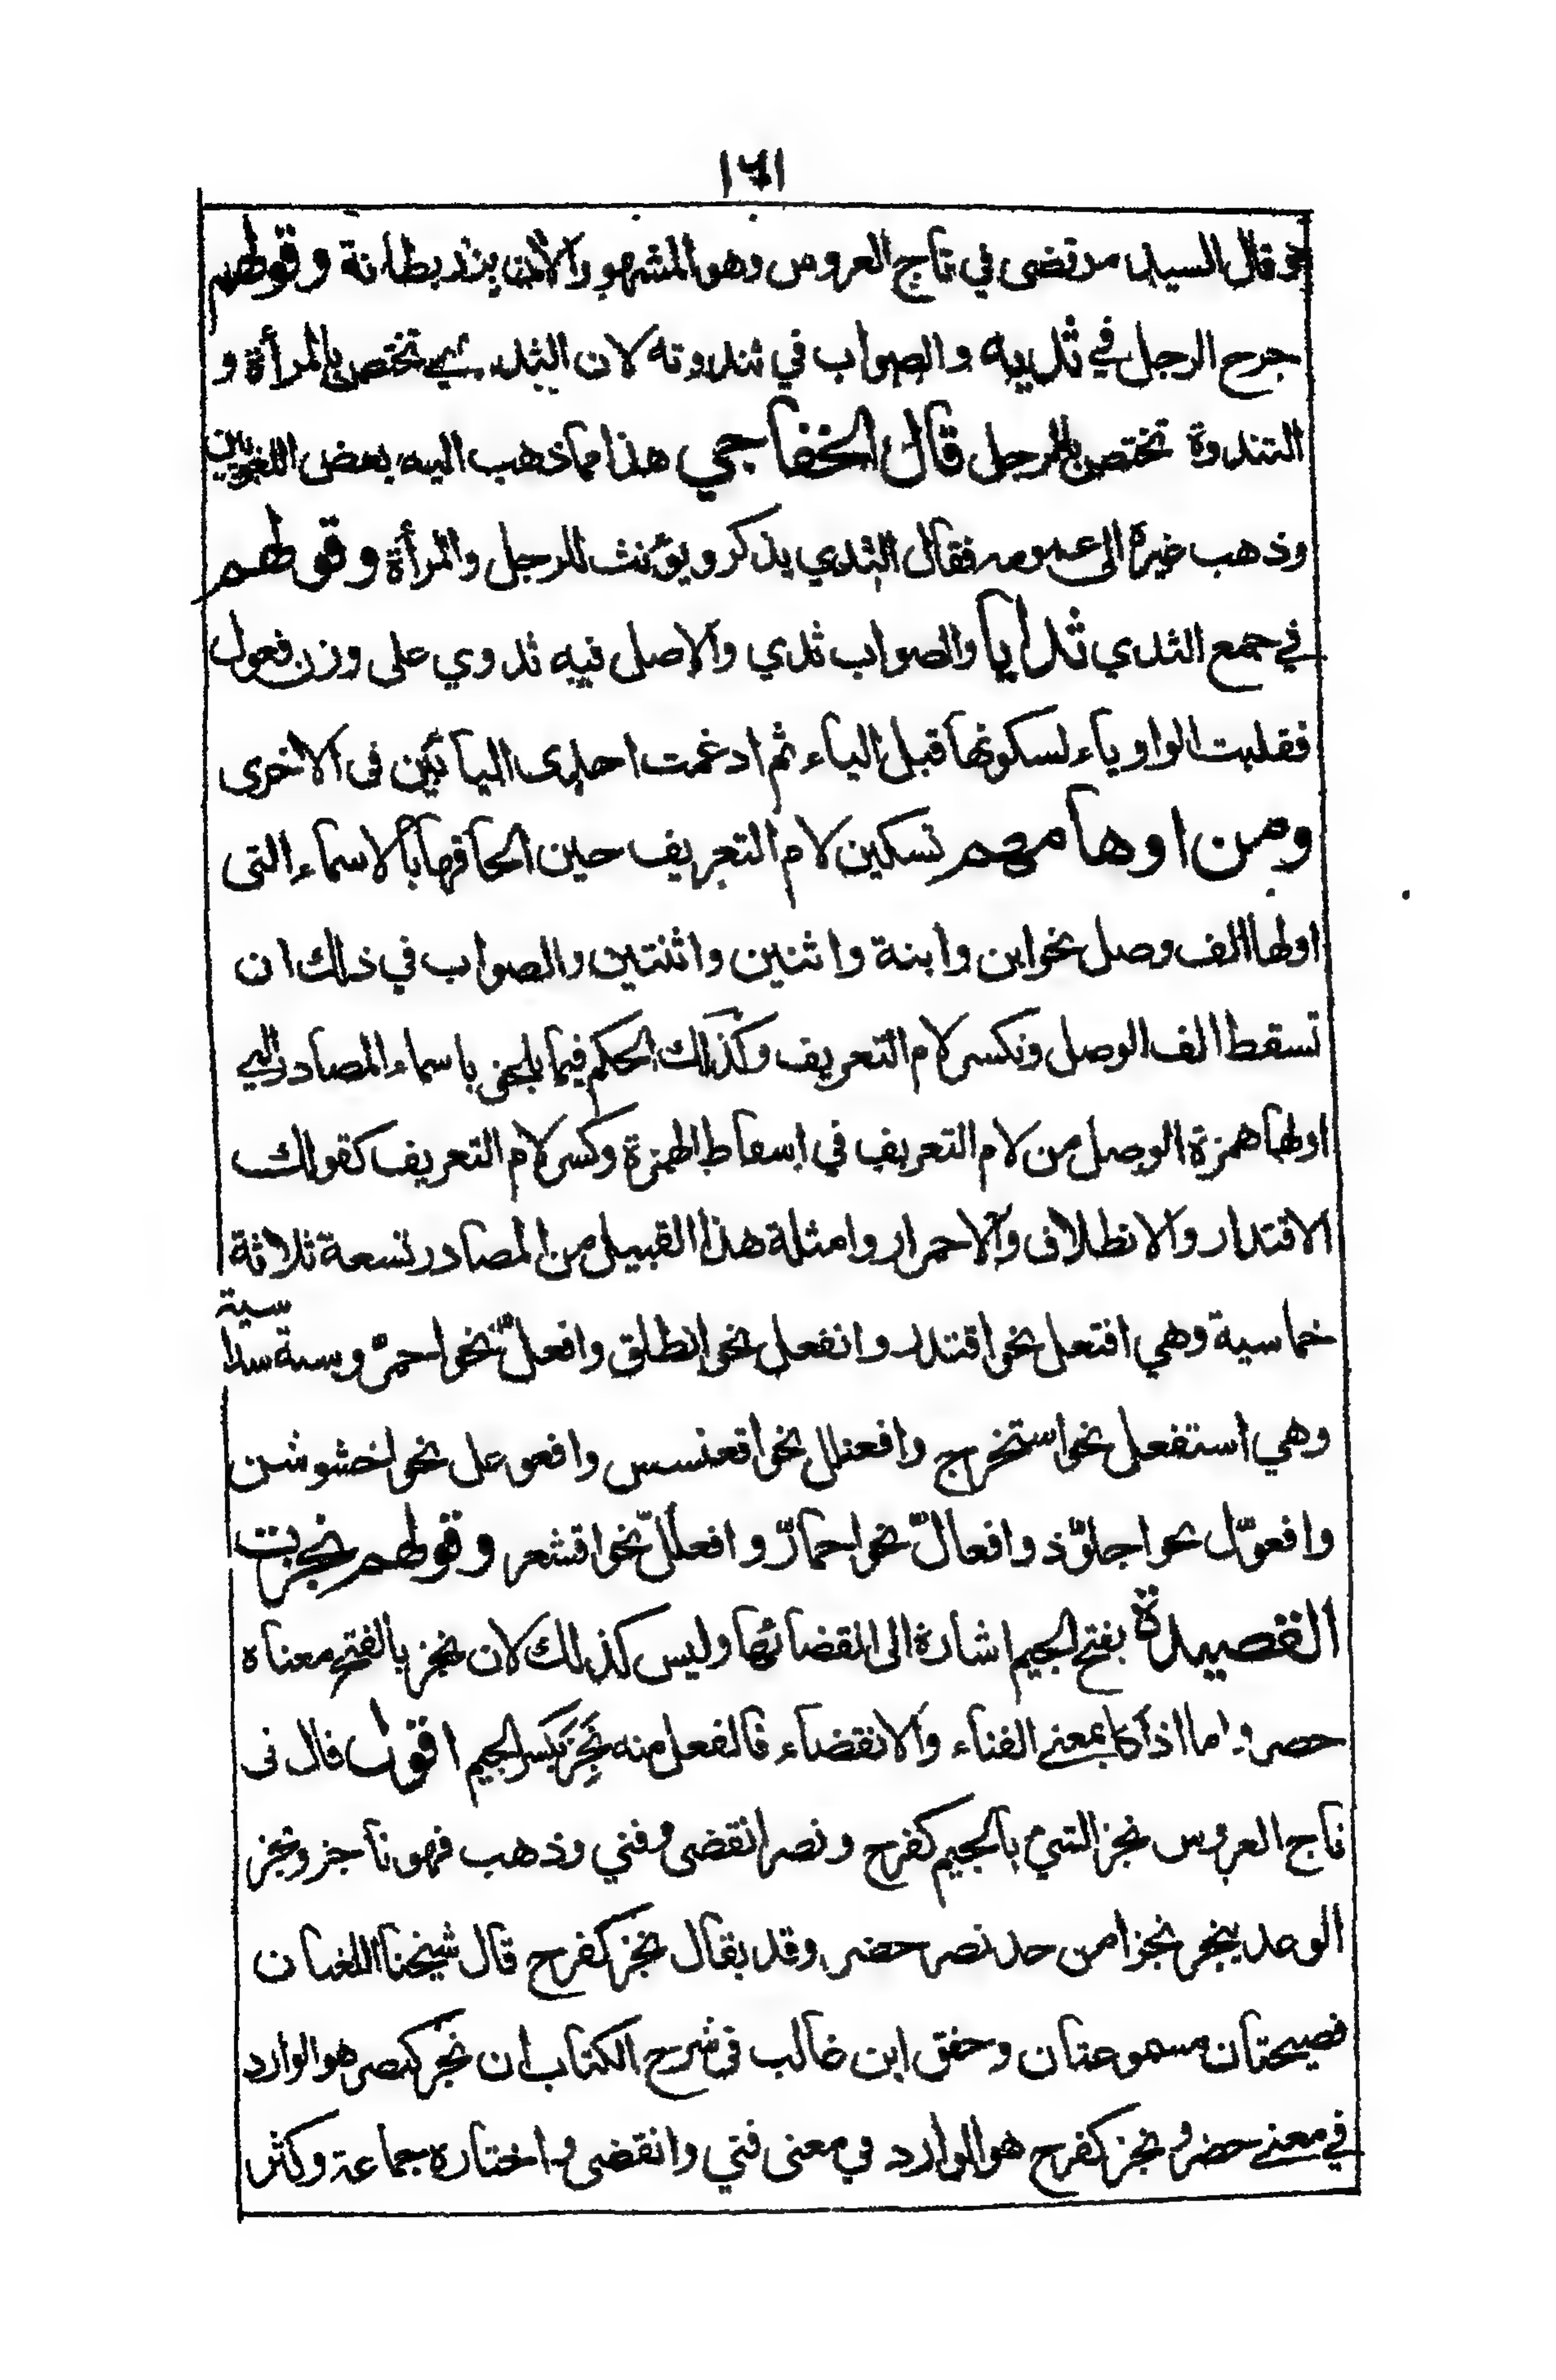 ١٦١
قال السيد مرتضى في تاج العروس وهو المشهور الآن بزند بطانة وقولهم
جرح الرجل في ثديه والصواب في ثندوته لان الثدي تختص بالمرأة و
الثندوة تختص بالرجل قال الخفاجي هذا مما ذهب اليه بعض اللغويين
وذهب غيره الى عمومه فقال الثدي يذكر ويؤنث للرجل والمرأة وقولهم
في جمع الثدي ثدايا والصواب ثدي والاصل فيه ثدوي على وزن فعول
فقلبت الواو ياء لسكونها قبل الياء ثم ادغمت احدى اليائين فى الاخرى
ومن اوهامهم تسكين لام التعريف حين الحاقها بالاسماء التى
اولها الف وصل نحو ابن وابنة واثنين واثنتين والصواب في ذلك ان
تسقط الف الوصل وتكسر لام التعريف وكذلك الحكم فيما يلحق باسماء المصادر التي
اولها همزة الوصل من لام التعريف في اسقاط الهمزة وكسر لام التعريف كقولك
الاقتدار والانطلاق والاحمرار وامثلة هذا القبيل من المصادر تسعة ثلاثة
خماسية وهي افتعل نحو اقتدر وانفعل نحو انطلق وافعلّ نحو احمرّ وستة سداسية
وهي استفعل نحو استخرج وافعنلل نحو اقعنسس وافعوعل نحو اخشوشن
وافعوّل نحو اجلوّذ وافعالّ نحو احمارّ وافعللّ نحو اقشعر وقولهم نجزت
القصيدة بفتح الجيم اشارة الى انقضائها وليس كذلك لان نجز بالفتح معناه
حضر واما اذا كا بمعنى الفناء والانقضاء فالفعل منه نَجِزَ بكسر الجيم اقول قال فى
تاج العروس نجز الشئ بالجيم كفرح ونصر انقضى وفني وذهب فهو ناجز ونجز
الوعد ينجز نجزا من حد نصر حضر وقد يقال نجز كفرح قال شيخنا اللغتان
فصيحتان مسموعتان وحقق ابن غالب فى شرح الكتاب ان نجز كنصر هو الوارد
في معنى حضر ونجز كفرح هو الوارد في معنى فني وانقضى واختاره جماعة وكثر